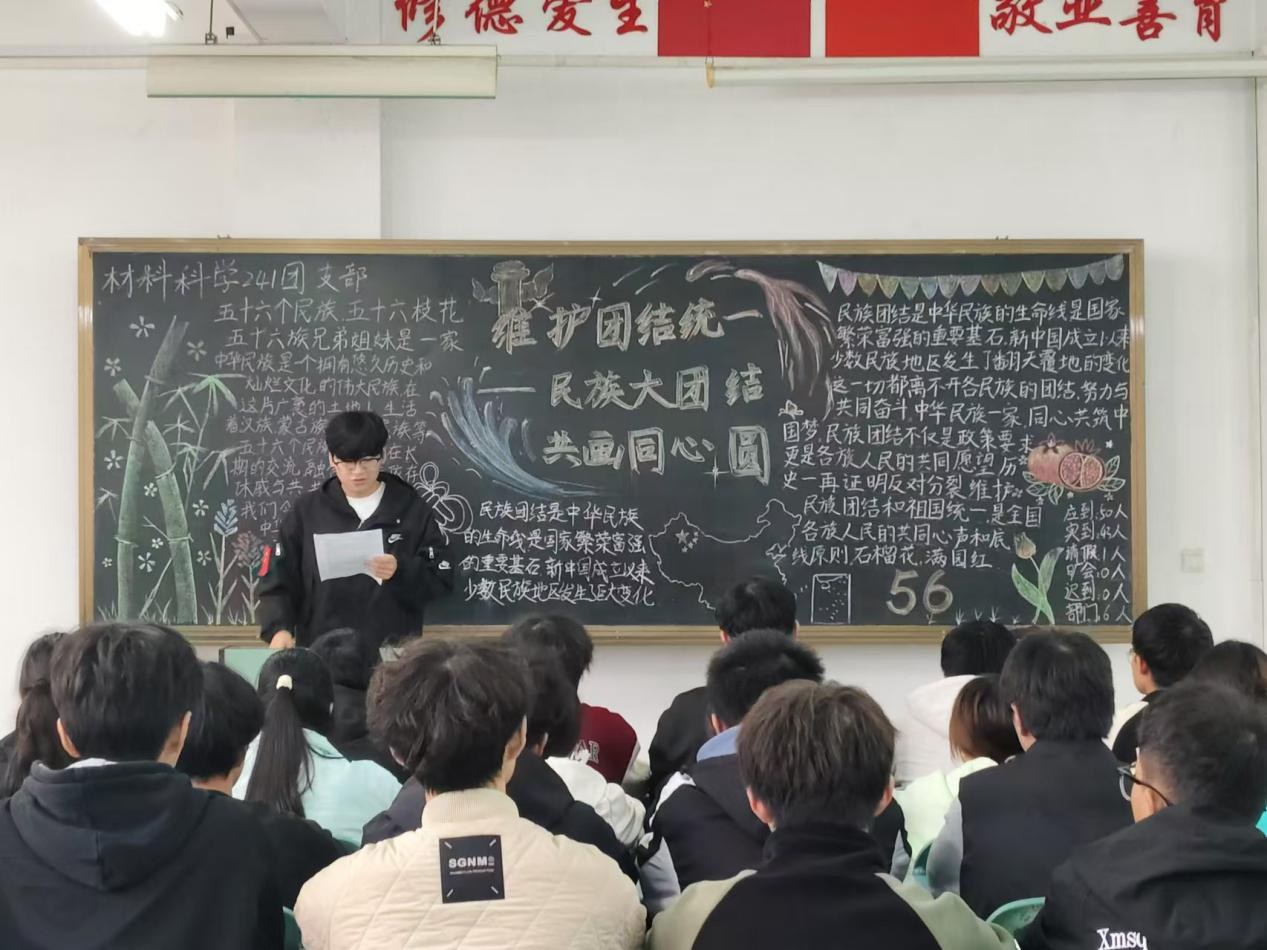 修德爱生
敬业善育
材料科学241团支部
五十六个民族,五十六枝花
五十六族兄弟姐妹是一家
中华民族是一个拥有悠久历史和
灿烂文化的伟大民族,在
这片广袤的土地上生活
着汉族蒙古族 族等
五十六个民 在长
期的交流,融 在
休戚与共
我们
维护团结统一
——民族大团结
共画同心圆
民族团结是中华民族
的生命线是国家繁荣富强
的重要基石,新中国成立以来
少数民族地区发生巨大变化
民族团结是中华民族的生命线是国家
繁荣富强的重要基石,新中国成立以来
少数民族地区发生了翻天覆地的变化
这一切都离不开各民族的团结,努力与
共同奋斗中华民族一家,同心共筑中
国梦,民族团结不仅是政策要求
更是各族人民的共同愿 历
史一再证明反对分裂维护
民族团结和祖国统一是全国
各族人民的共同心声和底
线原则,石榴花,满园红
56
应到:50人
实到:46人
请假:1人
旷会:0人
迟到:0人
部门:6人
SGNM
Xmsy